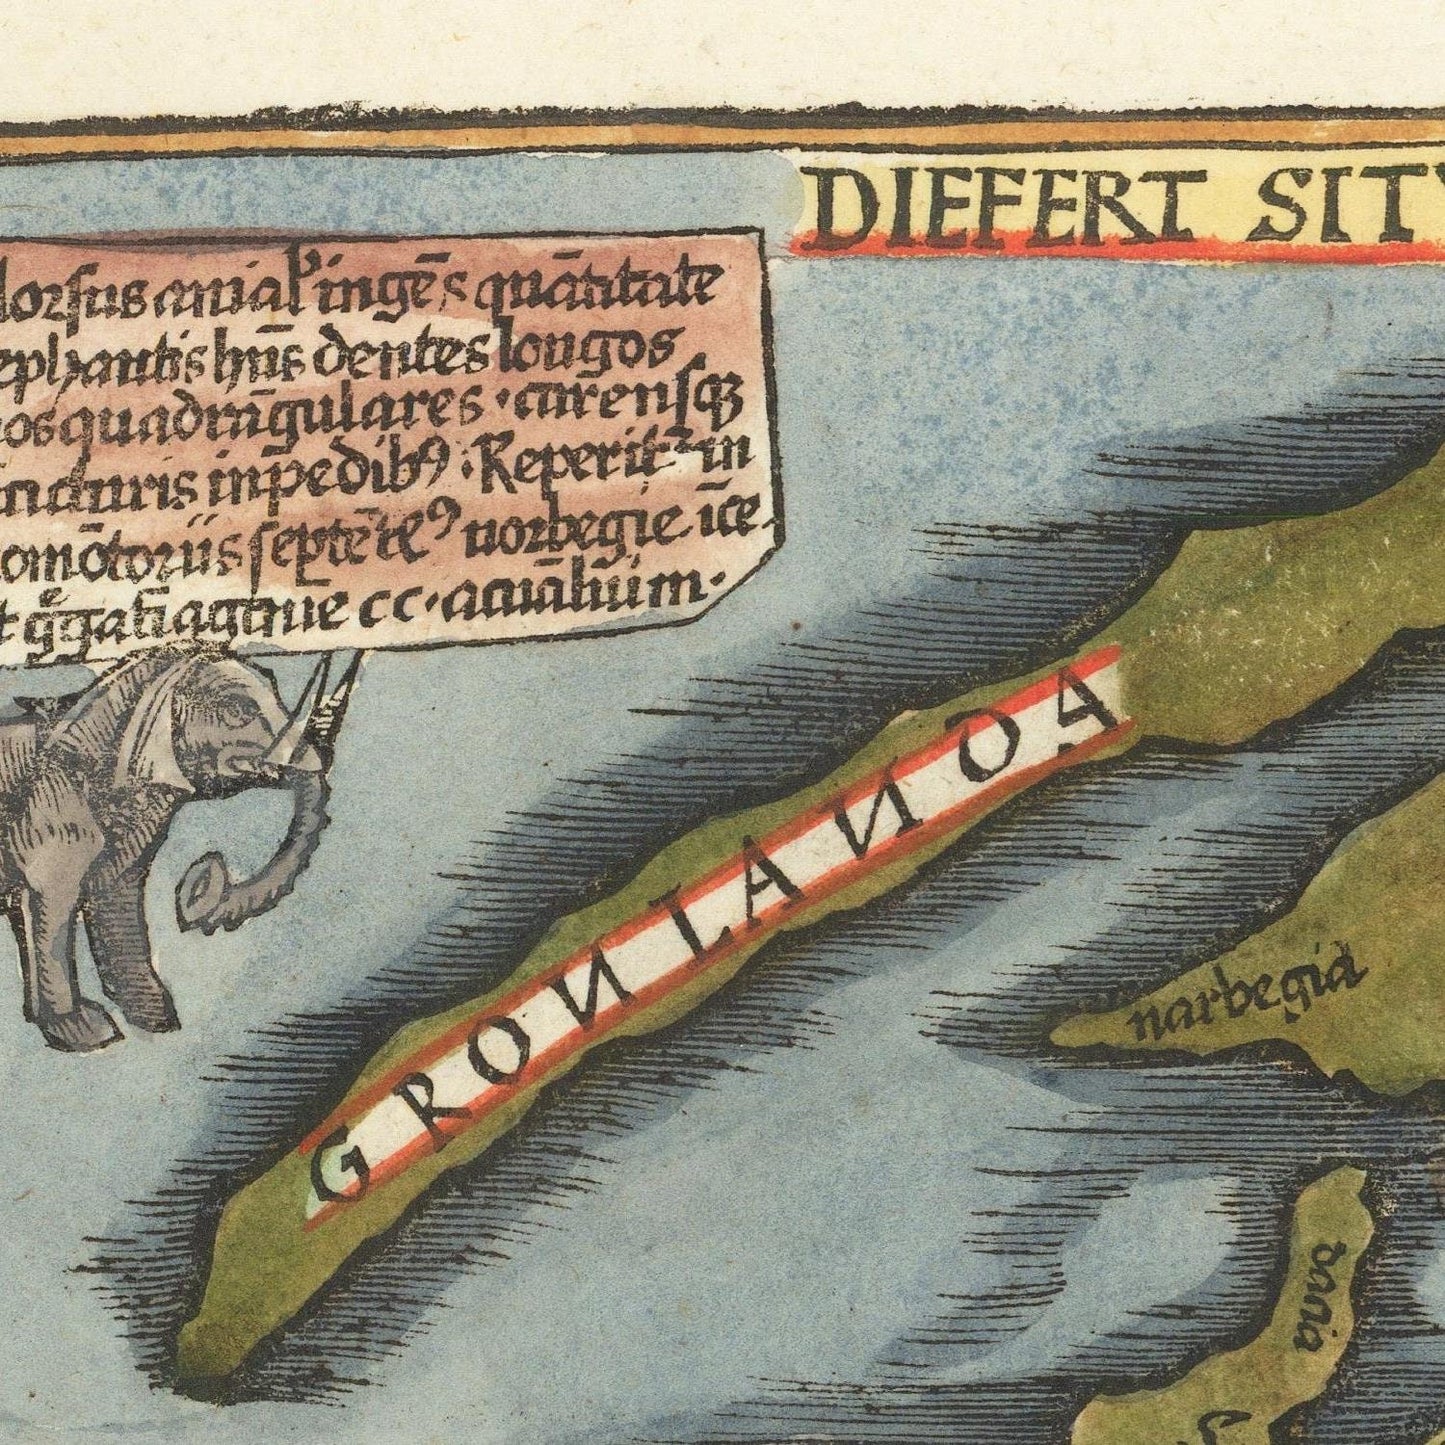 DIEFERT SITV
lorsus anial' ingēs quātitate
ephantis hn̄s dentes longos
os quadrāgulares · carensqz
cturis in pedibꝰ · Reperit̄ in
omōtoriis septētꝰ norbegie
t cc · aīalium ·
GRONLANDA
narbegia
dania